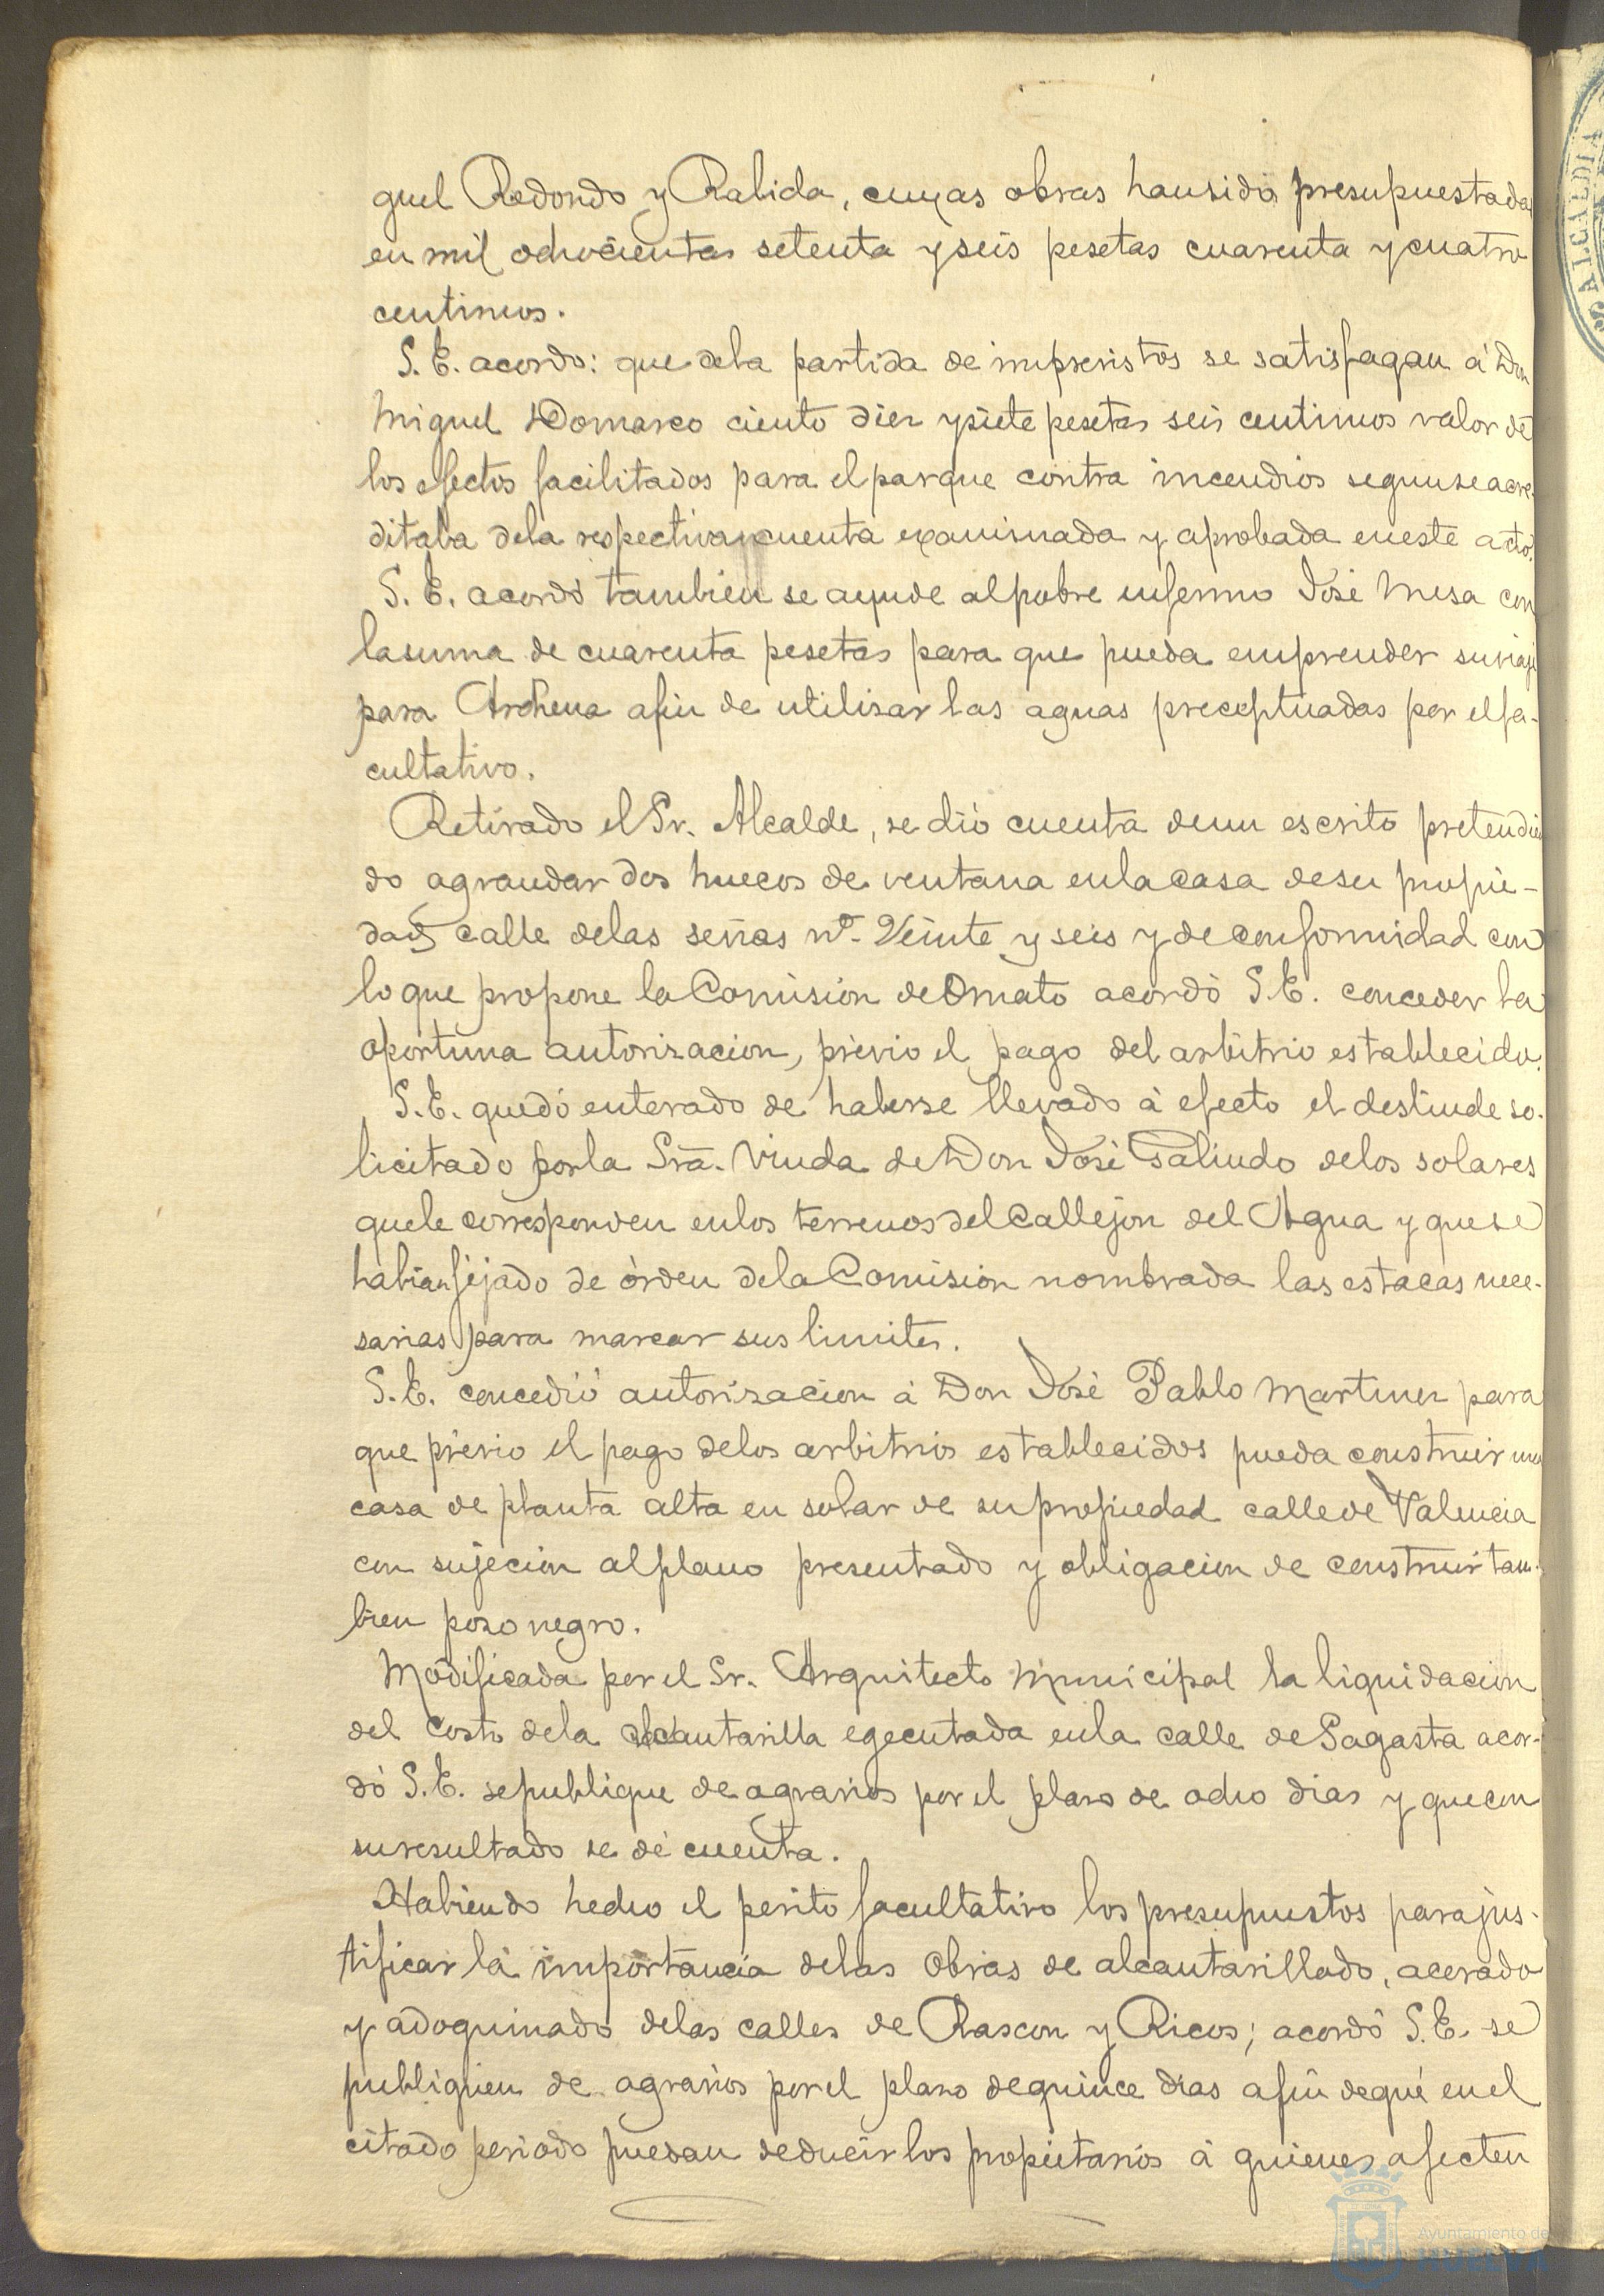 guel Redondo y Rabida, cuyas obras han sido presupuestadas
en mil ochocientas setenta y seis pesetas cuarenta y cuatro
centimos.
S. E. acordo: que de la partida de imprevistos se satisfagan á Don
Miguel Domarco ciento diez y siete pesetas seis centimos valor de
los efectos facilitados para el parque contra incendios segun se acre-
ditaba de la respectiva cuenta examinada y aprobada en este acto.
S. E. acordó tambien se ayude al pobre enfermo José Mesa con
la suma de cuarenta pesetas para que pueda emprender su viaje
para Archena afin de utilisar las aguas preceptuadas por el fa-
cultativo.
Retirado el Sr. Alcalde, se dió cuenta de un escrito pretendien
do agrandar dos huecos de ventana en la casa de su propie-
dad calle de las señas nº. Veinte y seis y de conformidad con
lo que propone la Comision de Ornato acordó S. E. conceder la
oportuna autorizacion, prévio el pago del arbitrio establecido.
S. E. quedó enterado de haberse llevado á efecto el deslinde so-
licitado por la Sra. Viuda de Don José Galindo de los solares
que le corresponden en los terrenos del Callejon del Agua y que se
habian fijado de órden de la Comision nombrada las estacas nece-
sarias para marcar sus limites.
S. E. concedió autorizacion á Don José Pablo Martinez para
que prévio el pago de los arbitrios establecidos pueda construir una
casa de planta alta en solar de su propiedad calle de Valencia
con sujecion al plano presentado y obligacion de construir tam-
bien pozo negro.
Modificada por el Sr. Arquitecto Municipal la liquidacion
del costo de la alcantarilla egecutada en la calle de Sagasta acor-
dó S. E. se publique de agravios por el plazo de ocho dias y que con
su resultado se dé cuenta.
Habiendo hecho el perito facultativo los presupuestos para jus-
tificar la importancia de las obras de alcantarillado, acerado
y adoquinado de las calles de Rascon y Ricos; acordó S. E. se
publiquen de agravios por el plazo de quince dias afin de que en el
citado periodo puedan deducir los propietarios á quienes afecten
ALCALDIA
Ayuntamiento de
HUELVA